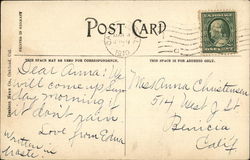 POST CARD
THIS SPACE MAY BE USED FOR CORRESPONDENCE.
THIS SPACE IS FOR ADDRESS ONLY.
PRINTED IN GERMANY
Dear Anna: We
will come up Sun
day morning if
it don't rain
Love from Edna
Written in
haste
Miss Anna Christensen
514 West J St
Benicia
Calif